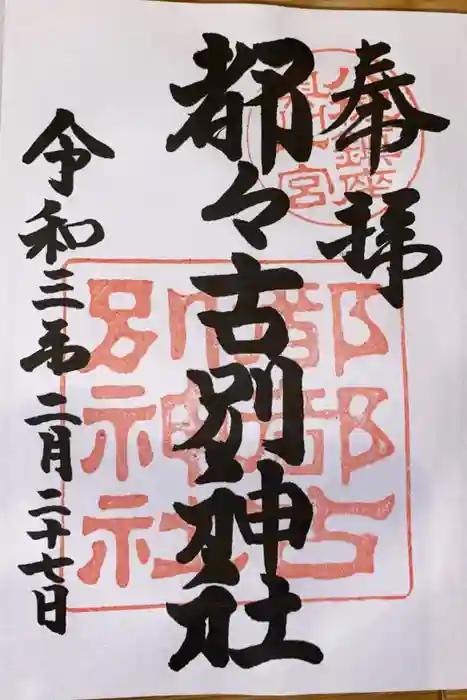 奉拝
都々古別神社
令和三年二月二十七日
都都古
別神社